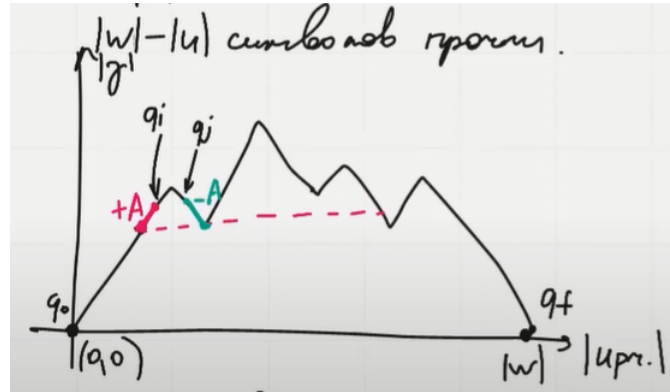 |w|-|u| символов прочит.
|γ|
qi
qj
+A
-A
q₀
qf
(0,0)
|w|
|uпр.|